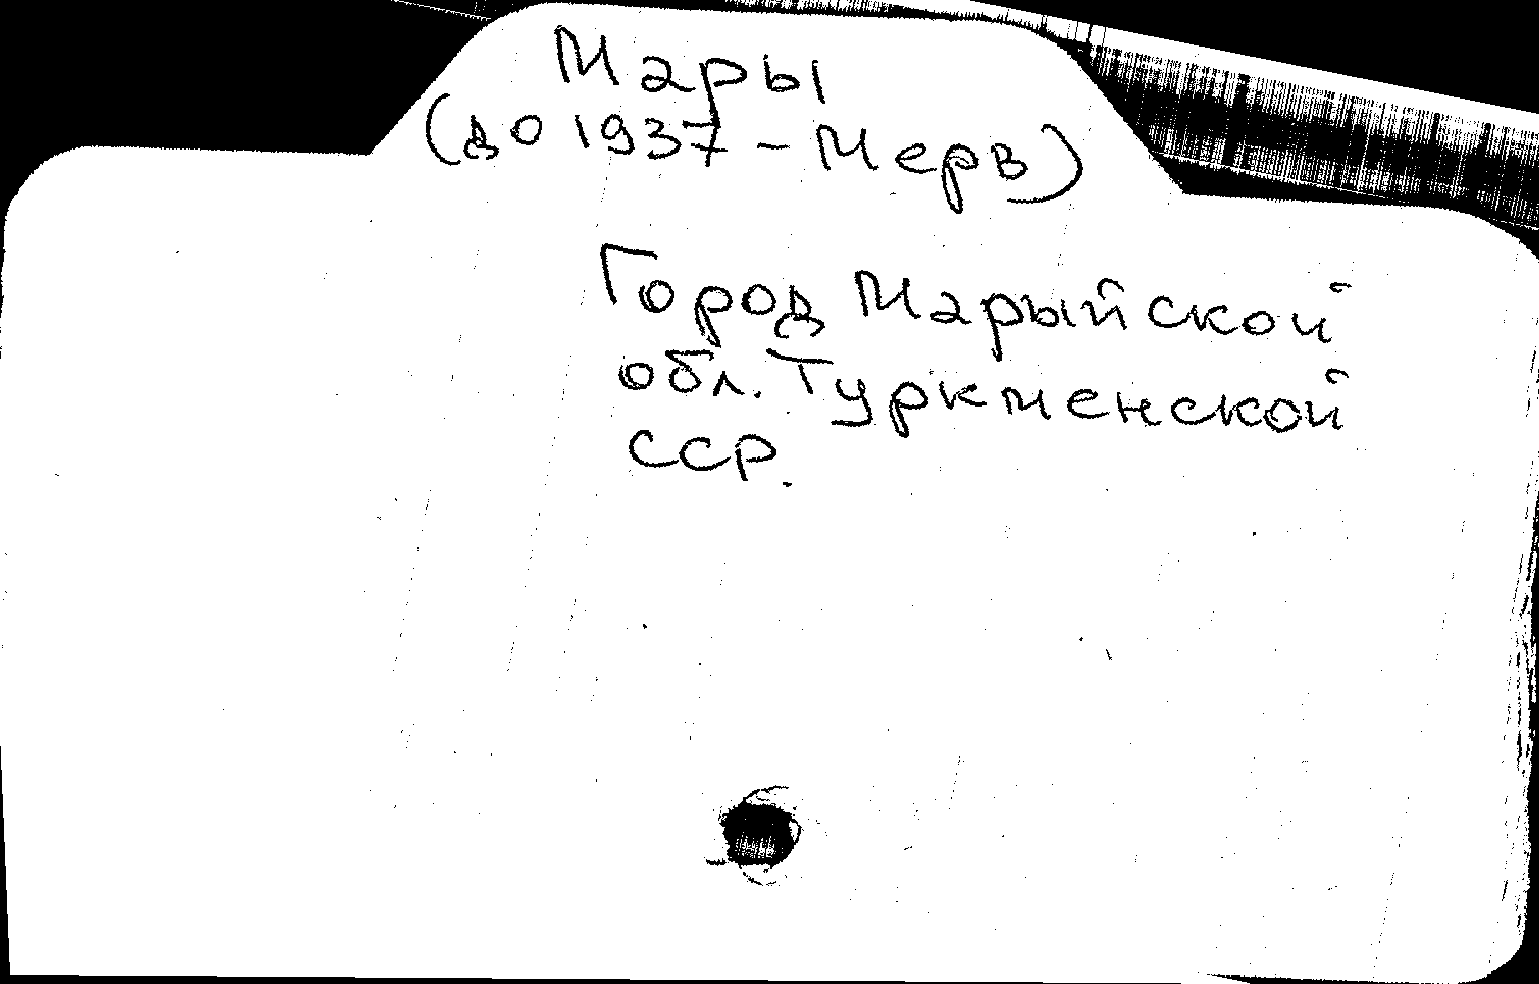 Мары
(до 1937 - Мерв)
Город Марыйской
обл. Туркменской
ССР.